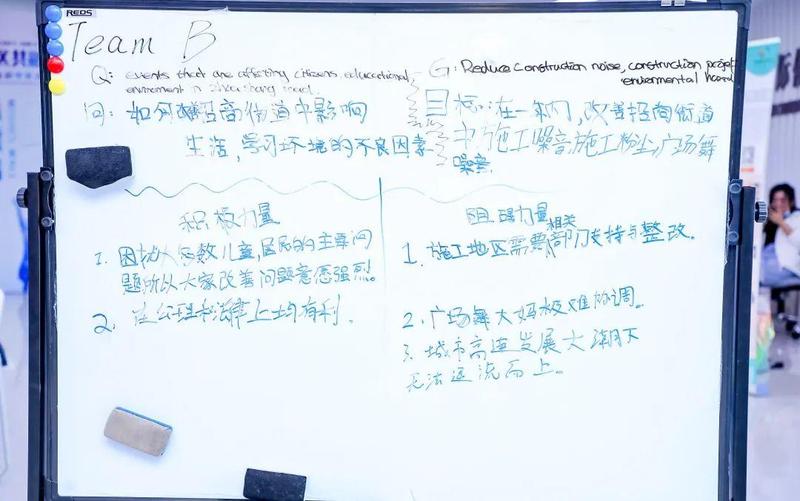 REDS
Team B
Q: events that are affecting citizens educational,
environment in zhaoshang road.
G: Reduce construction noise, construction project
environmental hazard
问: 如何解招商街道中影响
生活,学习环境的不良因素
目标: 在一年内,改善招商街道
中施工噪音,施工粉尘,广场舞
噪音.
积极力量
1. 困扰大多数儿童,居民的主要问
题所以大家改善问题意愿强烈。
2. 在公理和法律上均有利.
阻碍力量
1. 施工地区需要相关部门支持与整改.
2. 广场舞大妈极难协调。
3. 城市高速发展大潮下
无法逆流而上。